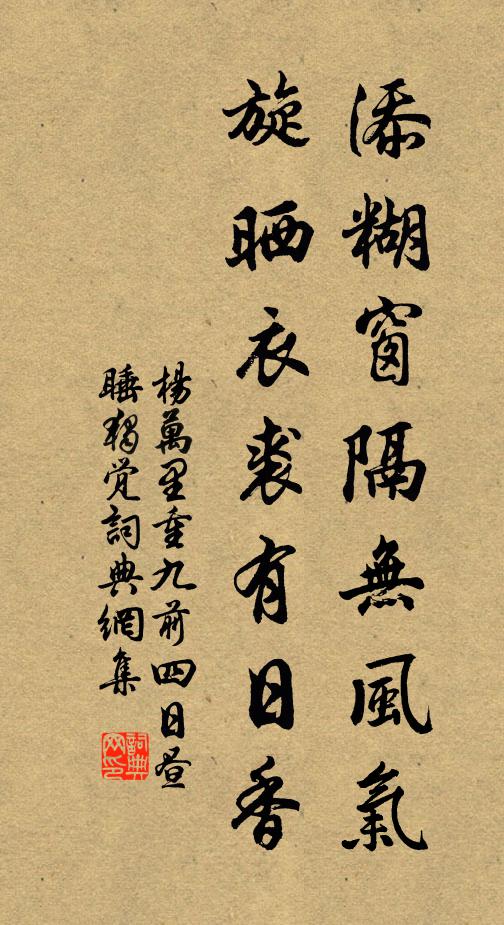 添糊窗隔無風氣
旋晒衣裘有日香
楊萬里重九前四日晝
睡獨覺詞典網集
詞典
网印